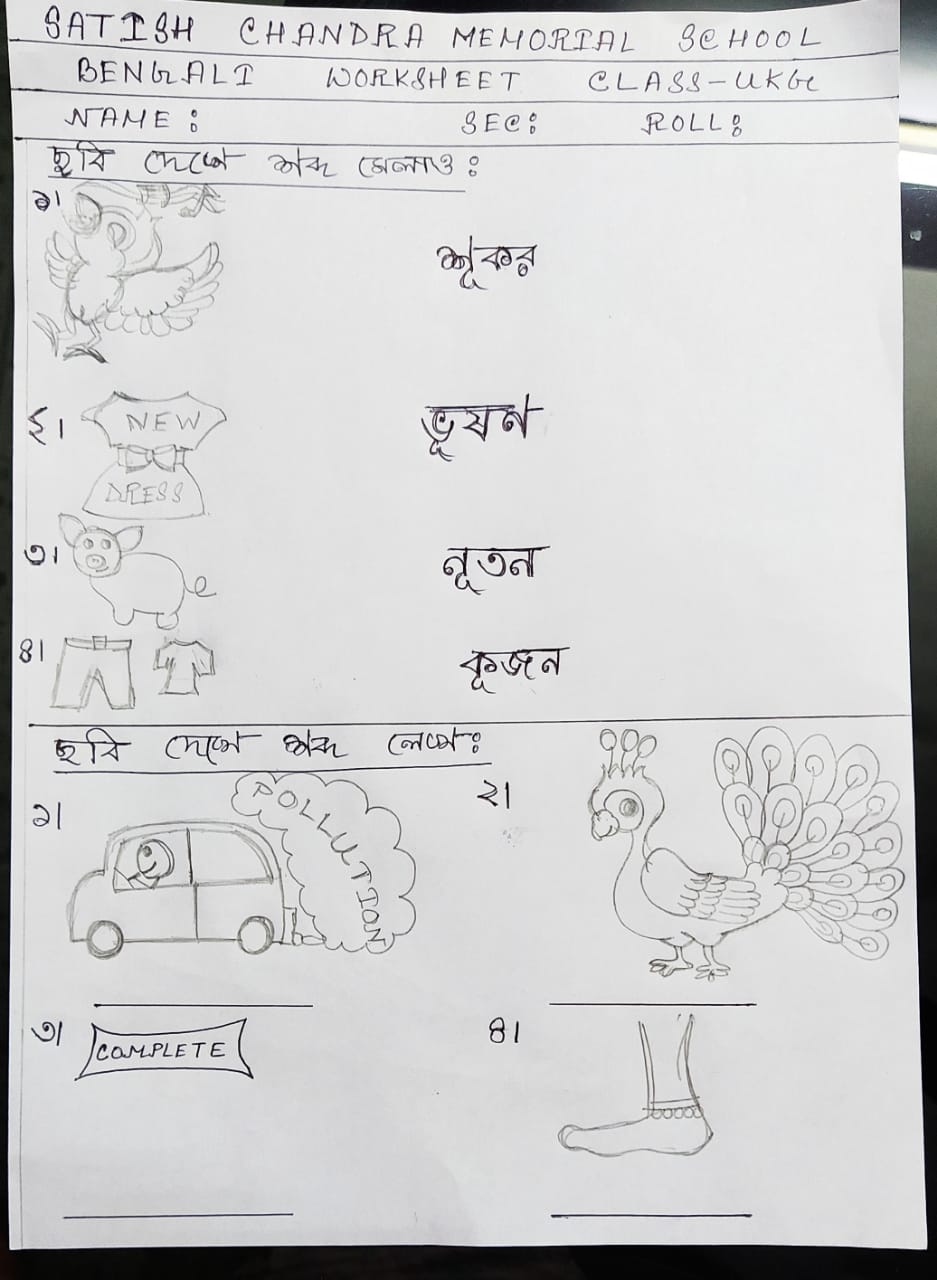 SATISH CHANDRA MEMORIAL SCHOOL
BENGALI WORKSHEET CLASS-UKG
NAME: SEC: ROLL:
ছবি দেখে শব্দ মেলাও :
১।
শূকর
২।
NEW
DRESS
ভূষণ
৩।
নূতন
৪।
কূজন
ছবি দেখে শব্দ লেখো:
১।
POLLUTION
২।
৩।
COMPLETE
৪।